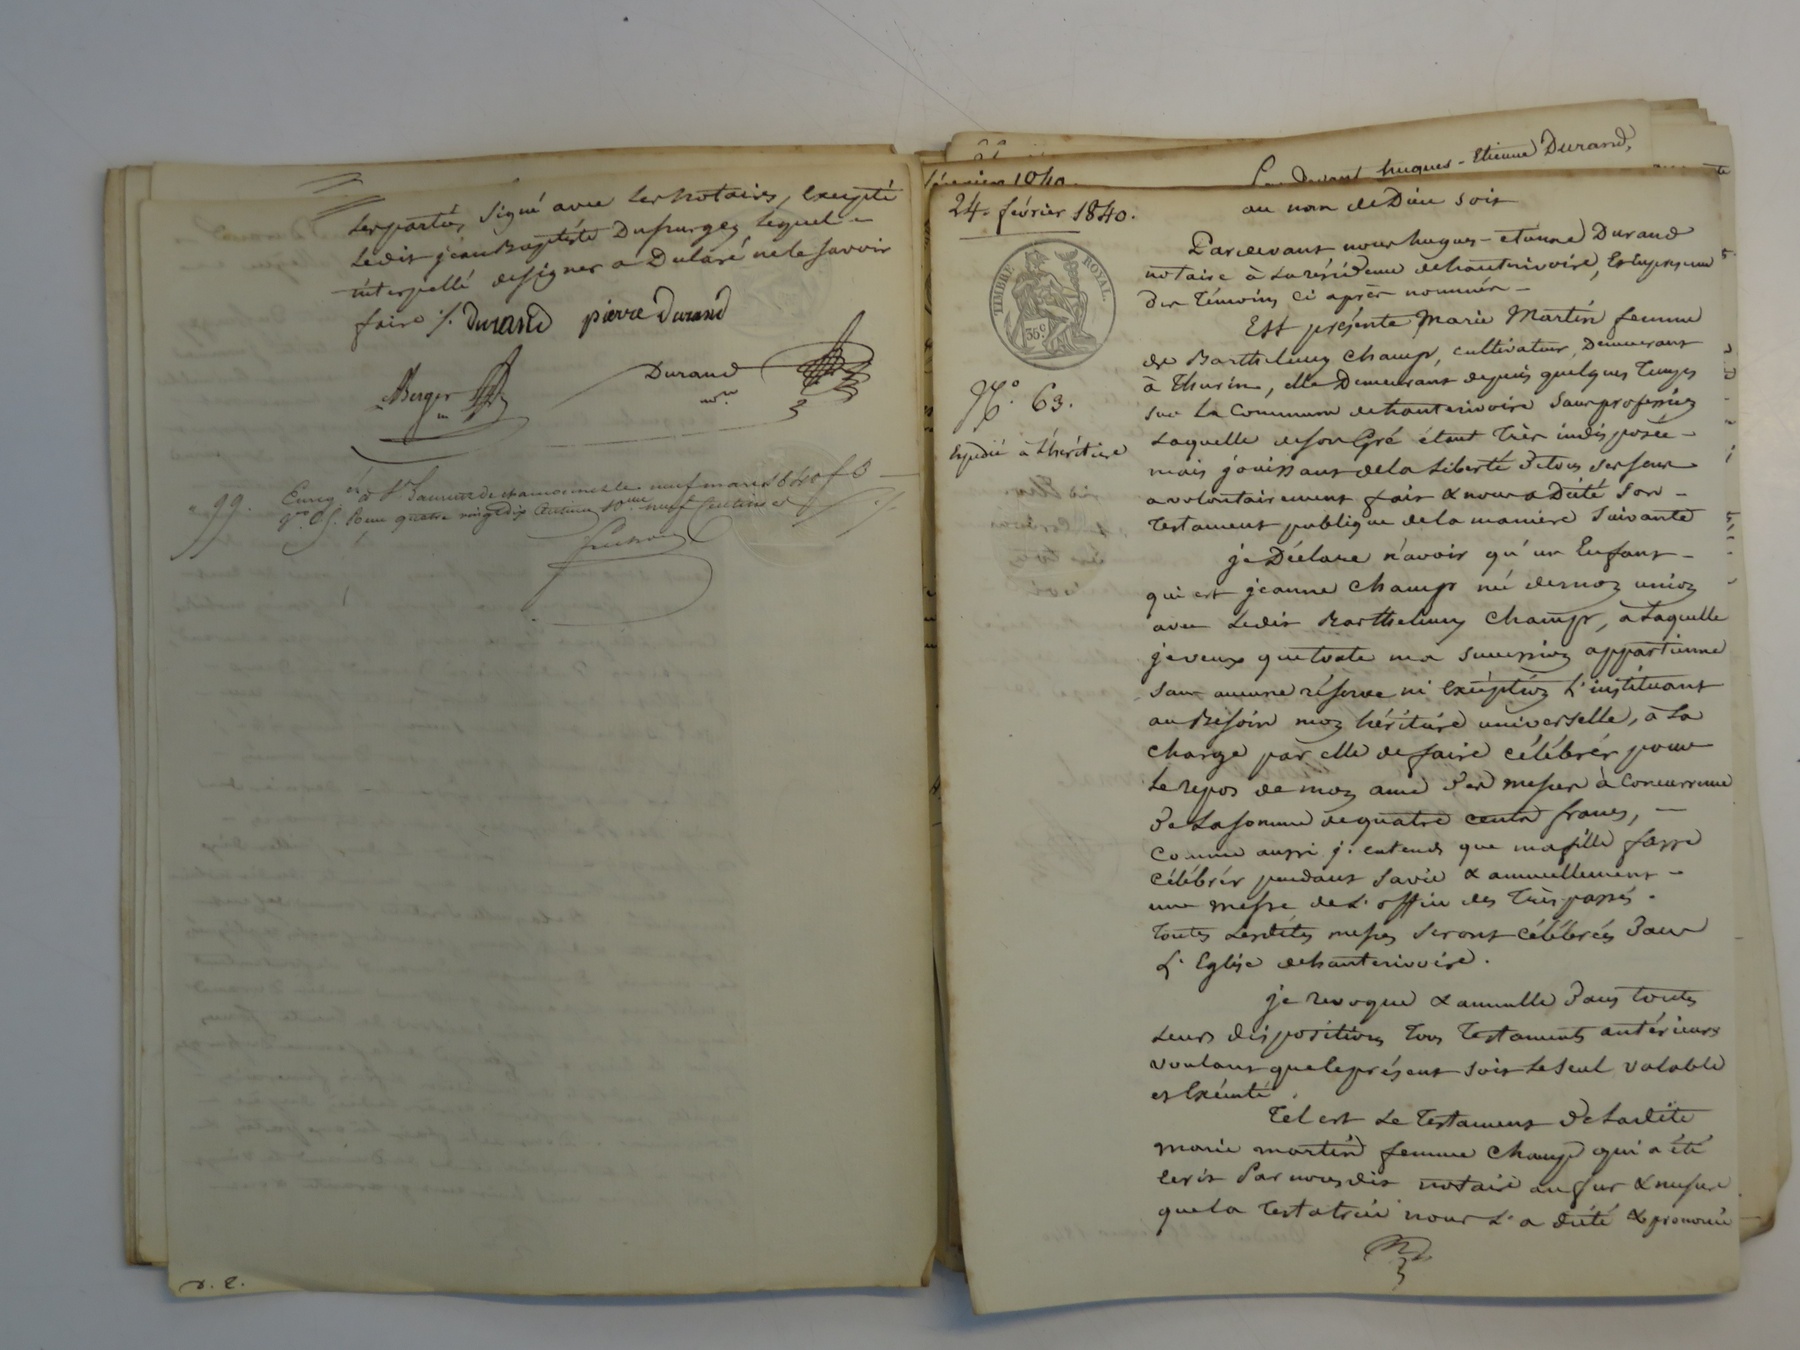 les parties, signé avec les notaires, excepté
ledit jean Baptiste Dupurgez lequel –
interpellé designer a Déclaré ne le savoir
faire ./. durand pierre Durand
Berger Durand
nre
99.
Enreg à St Laurent de chamousset le neuf mars 1840 fo 3
Reçu quatre vingt dix centimes 10me neuf centimes
D. 2.
février 1840.
Par devant hugues - Etienne Durand,
24. février 1840.
au nom de Dieu soit
TIMBRE ROYAL.
35 c
Pardevant nous hugues - etienne Durand
notaire à La résidence dehauterivoire, Enprésence
des témoins ci après nommés –
Est présente Marie Martin femme
de Barthelemy Champ, cultivateur, Demeurant
à Thurin, elle Demeurant depuis quelques temps
No. 63.
sur La Commune dehauterivoire sans profession
Expédié à l'héritière
Laquelle deson Gré étant très indisposée –
mais jouissant de la Liberté de tous ses sens
a volontairement fait & nous a Dicté son –
testament publique de la manière suivante
je Déclare n'avoir qu'un Enfant –
qui est jeanne Champ né de mon union
avec Ledit Barthelemy Champ, à Laquelle
je veux que toute ma succession appartienne
sans aucune réserve ni Excéption L'instituant
au Besoin mon héritière universelle, à La
charge par elle de faire célébrer pour
Le repos de mon ame des messes à Concurrence
de La somme de quatre cents francs, –
Comme aussi j'entends que ma fille fasse
célébrer pendant sa vie & annuellement –
une messe de L'office des Trèspassés.
Toutes Lesdites messes seront célébrées Dans
L'Eglise dehauterivoire.
je revoque & annulle Dans toutes
Leurs dispositions Tous Testaments antérieurs
voulant que le présent soit Le seul valable
et Exécuté
Tel est Le Testament de Ladite
marie martin femme Champ qui a été
Ecrit Par nousdit notaire au fur & mesure
que la Testatrice nous L'a dicté & prononcé